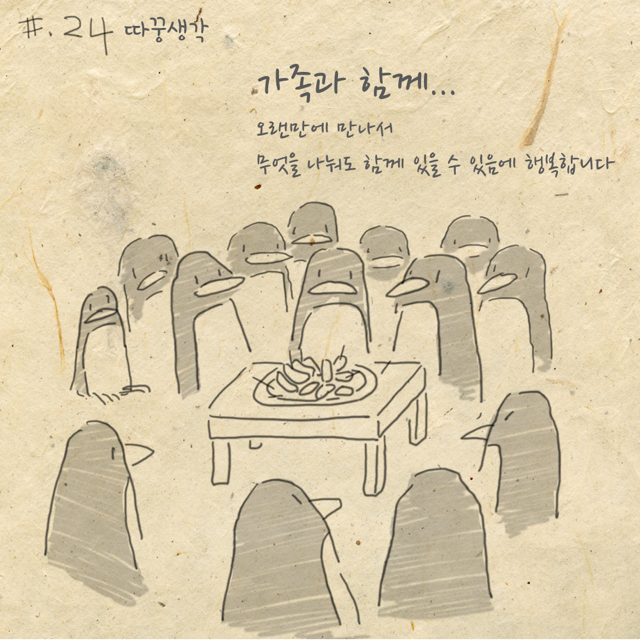 #.24 따꿍생각
가족과 함께...
오랜만에 만나서
무엇을 나눠도 함께 있을 수 있음에 행복합니다